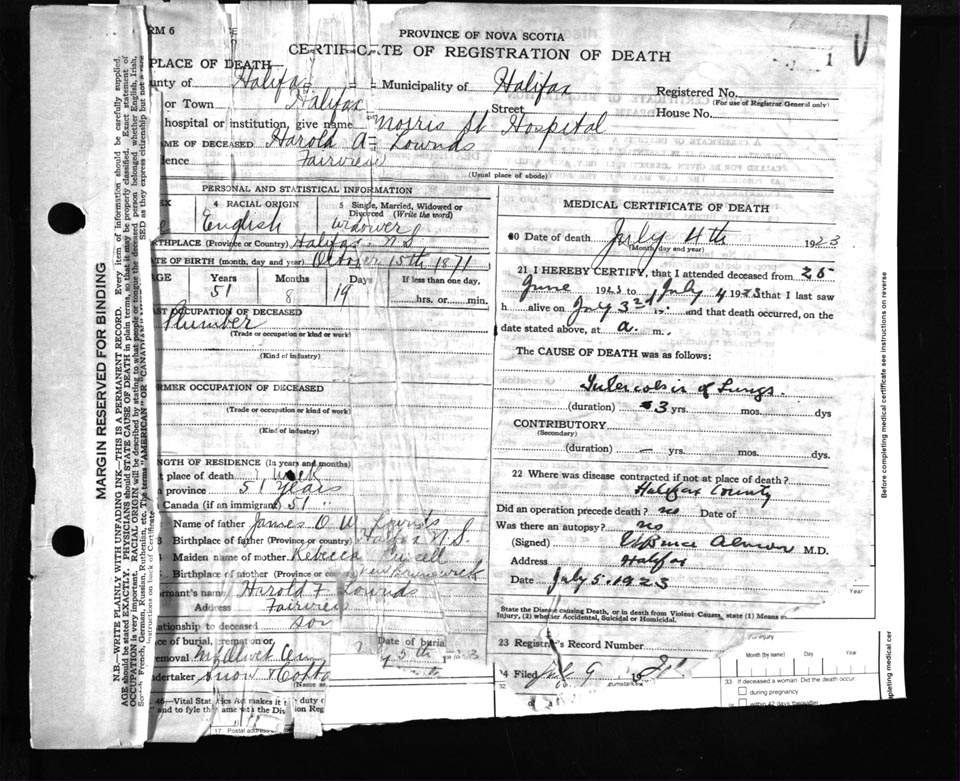 RM 6
PROVINCE OF NOVA SCOTIA
CERTIFICATE OF REGISTRATION OF DEATH
1
PLACE OF DEATH—
unty of Halifax Municipality of Halifax Registered No.
(For use of Registrar General only)
or Town Halifax Street House No.
hospital or institution, give name Morris St Hospital
ME OF DECEASED Harold A Lownds
dence Fairview
(Usual place of abode)
PERSONAL AND STATISTICAL INFORMATION
EX 4 RACIAL ORIGIN 5 Single, Married, Widowed or Divorced (Write the word)
e English Widower
RTHPLACE (Province or Country) Halifax N.S.
ATE OF BIRTH (month, day and year) October 15th 1871
AGE Years Months Days If less than one day,
51 8 19 hrs. or min.
AST OCCUPATION OF DECEASED
Plumber
(Trade or occupation or kind of work)
(Kind of industry)
RMER OCCUPATION OF DECEASED
(Trade or occupation or kind of work)
(Kind of industry)
NGTH OF RESIDENCE (In years and months)
t place of death 1 week
n province 51 Years
Canada (if an immigrant) 51
Name of father James O W Lownds
Birthplace of father (Province or country) Halifax N.S.
Maiden name of mother Rebecca
Birthplace of Mother (Province or cou New Brunswick
ormant's name Harold F Lownds
Address Fairview
ationship to deceased son
ace of burial, cremation or Date of burial
emoval Mt Olivet Cem 5th
ndertaker Snow
(Name an
46—Vital Stat ics Act makes it duty
and to fyle th ame with the Div n Reg
17 Postal address
MEDICAL CERTIFICATE OF DEATH
20 Date of death July 4th 1923
(Month, day and year)
21 I HEREBY CERTIFY, that I attended deceased from 25
June 1923 to July 4 1923 that I last saw
h alive on July 3rd, and that death occurred, on the
date stated above, at a. m.
The CAUSE OF DEATH was as follows:
Tuberculosis of Lungs.
(duration) 3 yrs. mos. dys
CONTRIBUTORY
(Secondary)
(duration) — yrs. mos. dys.
22 Where was disease contracted if not at place of death?
Halifax County
Did an operation precede death? no Date of
Was there an autopsy? no
(Signed) M.D.
Address Halifax
Date July 5. 1923
State the Disease causing Death, or in death from Violent Causes, state (1) Means
Injury, (2) whether Accidental, Suicidal or Homicidal.
23 Registrar's Record Number
24 Filed 9 19
injury
Year
Month (by name) Day Year
cumstances
32
33 If deceased a woman. Did the death occur:
during pregnancy
or within 42 days thereafter
MARGIN RESERVED FOR BINDING
N.B.—WRITE PLAINLY WITH UNFADING INK—THIS IS A PERMANENT RECORD. Every item of information should be carefully supplied.
AGE should be stated EXACTLY. PHYSICIANS should STATE CAUSE OF DEATH in plain terms, so that it may be properly classified. Exact statement of
OCCUPATION is very important. RACIAL ORIGIN will be described by stating to what people or tongue the deceased person belonged whether English, Irish,
Scotch, French, German, Russian, Ruthenian, etc. The terms "AMERICAN" OR "CANADIAN" SED as they express citizenship but not a
Instructions on back of Certificate
Before completing medical certificate see instructions on reverse
mpleting medical cer